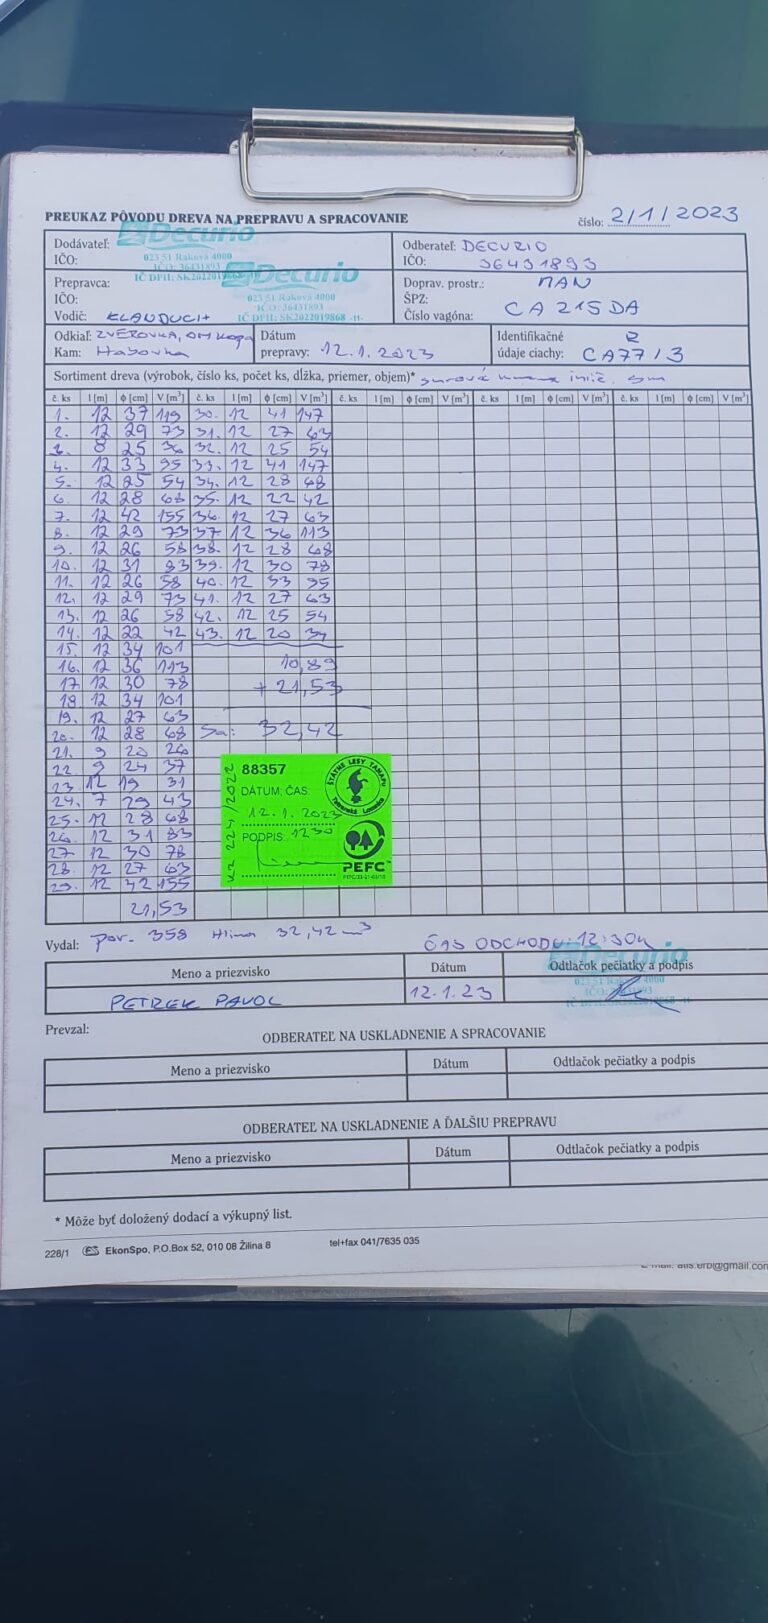 PREUKAZ PÔVODU DREVA NA PREPRAVU A SPRACOVANIE
číslo: 2/1/2023
Dodávateľ: Decurio
023 51 Raková 4000
IČO:
IČO: 36431893
Odberateľ: DECURIO
IČO: 36431893
Prepravca: Decurio
023 51 Raková 4000
IČO:
IČO: 36431893
IČ DPH: SK2022019868 -11-
Vodič: KLANDUCH
Doprav. prostr.: MAN
ŠPZ:
CA 215 DA
Číslo vagóna:
Odkiaľ: ZVEROVKA, OM Kopa
Kam: Habovka
Dátum
prepravy: 12.1.2023
Identifikačné
údaje ciachy: CA77 / 3
Sortiment dreva (výrobok, číslo ks, počet ks, dĺžka, priemer, objem)* surová
č. ks l [m] ϕ [cm] V [m³] č. ks l [m] ϕ [cm] V [m³] č. ks l [m] ϕ [cm] V [m³] č. ks l [m] ϕ [cm] V [m³] č. ks l [m] ϕ [cm] V [m³]
1. 12 37 119 30. 12 41 147
2. 12 29 73 31. 12 27 63
3. 8 25 36 32. 12 25 54
4. 12 33 95 33. 12 41 147
5. 12 25 54 34. 12 28 68
6. 12 28 68 35. 12 22 42
7. 12 42 155 36. 12 27 63
8. 12 29 73 37. 12 36 113
9. 12 26 58 38. 12 28 68
10. 12 31 83 39. 12 30 78
11. 12 26 58 40. 12 33 95
12. 12 29 73 41. 12 27 63
13. 12 26 58 42. 12 25 54
14. 12 22 42 43. 12 20 34
15. 12 34 101
16. 12 36 113 10,89
17. 12 30 78 + 21,53
18. 12 34 101
19. 12 27 63
20. 12 28 68 Sa: 32,42
21. 9 20 26
22. 9 24 37
23. 12 19 31
24. 7 29 43
25. 12 28 68
26. 12 31 83
27. 12 30 78
28. 12 27 63
29. 12 42 155
21,53
88357
DÁTUM, ČAS:
12.1.2023
PODPIS: 1230
ŠTÁTNE LESY TANAPU
Tatranská Lomnica
PEFC
Vydal: por. 358 Hlina 32,42 m³
ČAS ODCHODU: 12:30h
Meno a priezvisko Dátum Odtlačok pečiatky a podpis
PETREK PAVOL 12.1.23
Decurio
Prevzal:
ODBERATEĽ NA USKLADNENIE A SPRACOVANIE
Meno a priezvisko Dátum Odtlačok pečiatky a podpis
ODBERATEĽ NA USKLADNENIE A ĎALŠIU PREPRAVU
Meno a priezvisko Dátum Odtlačok pečiatky a podpis
* Môže byť doložený dodací a výkupný list.
228/1 EkonSpo, P.O.Box 52, 010 08 Žilina 8 tel+fax 041/7635 035